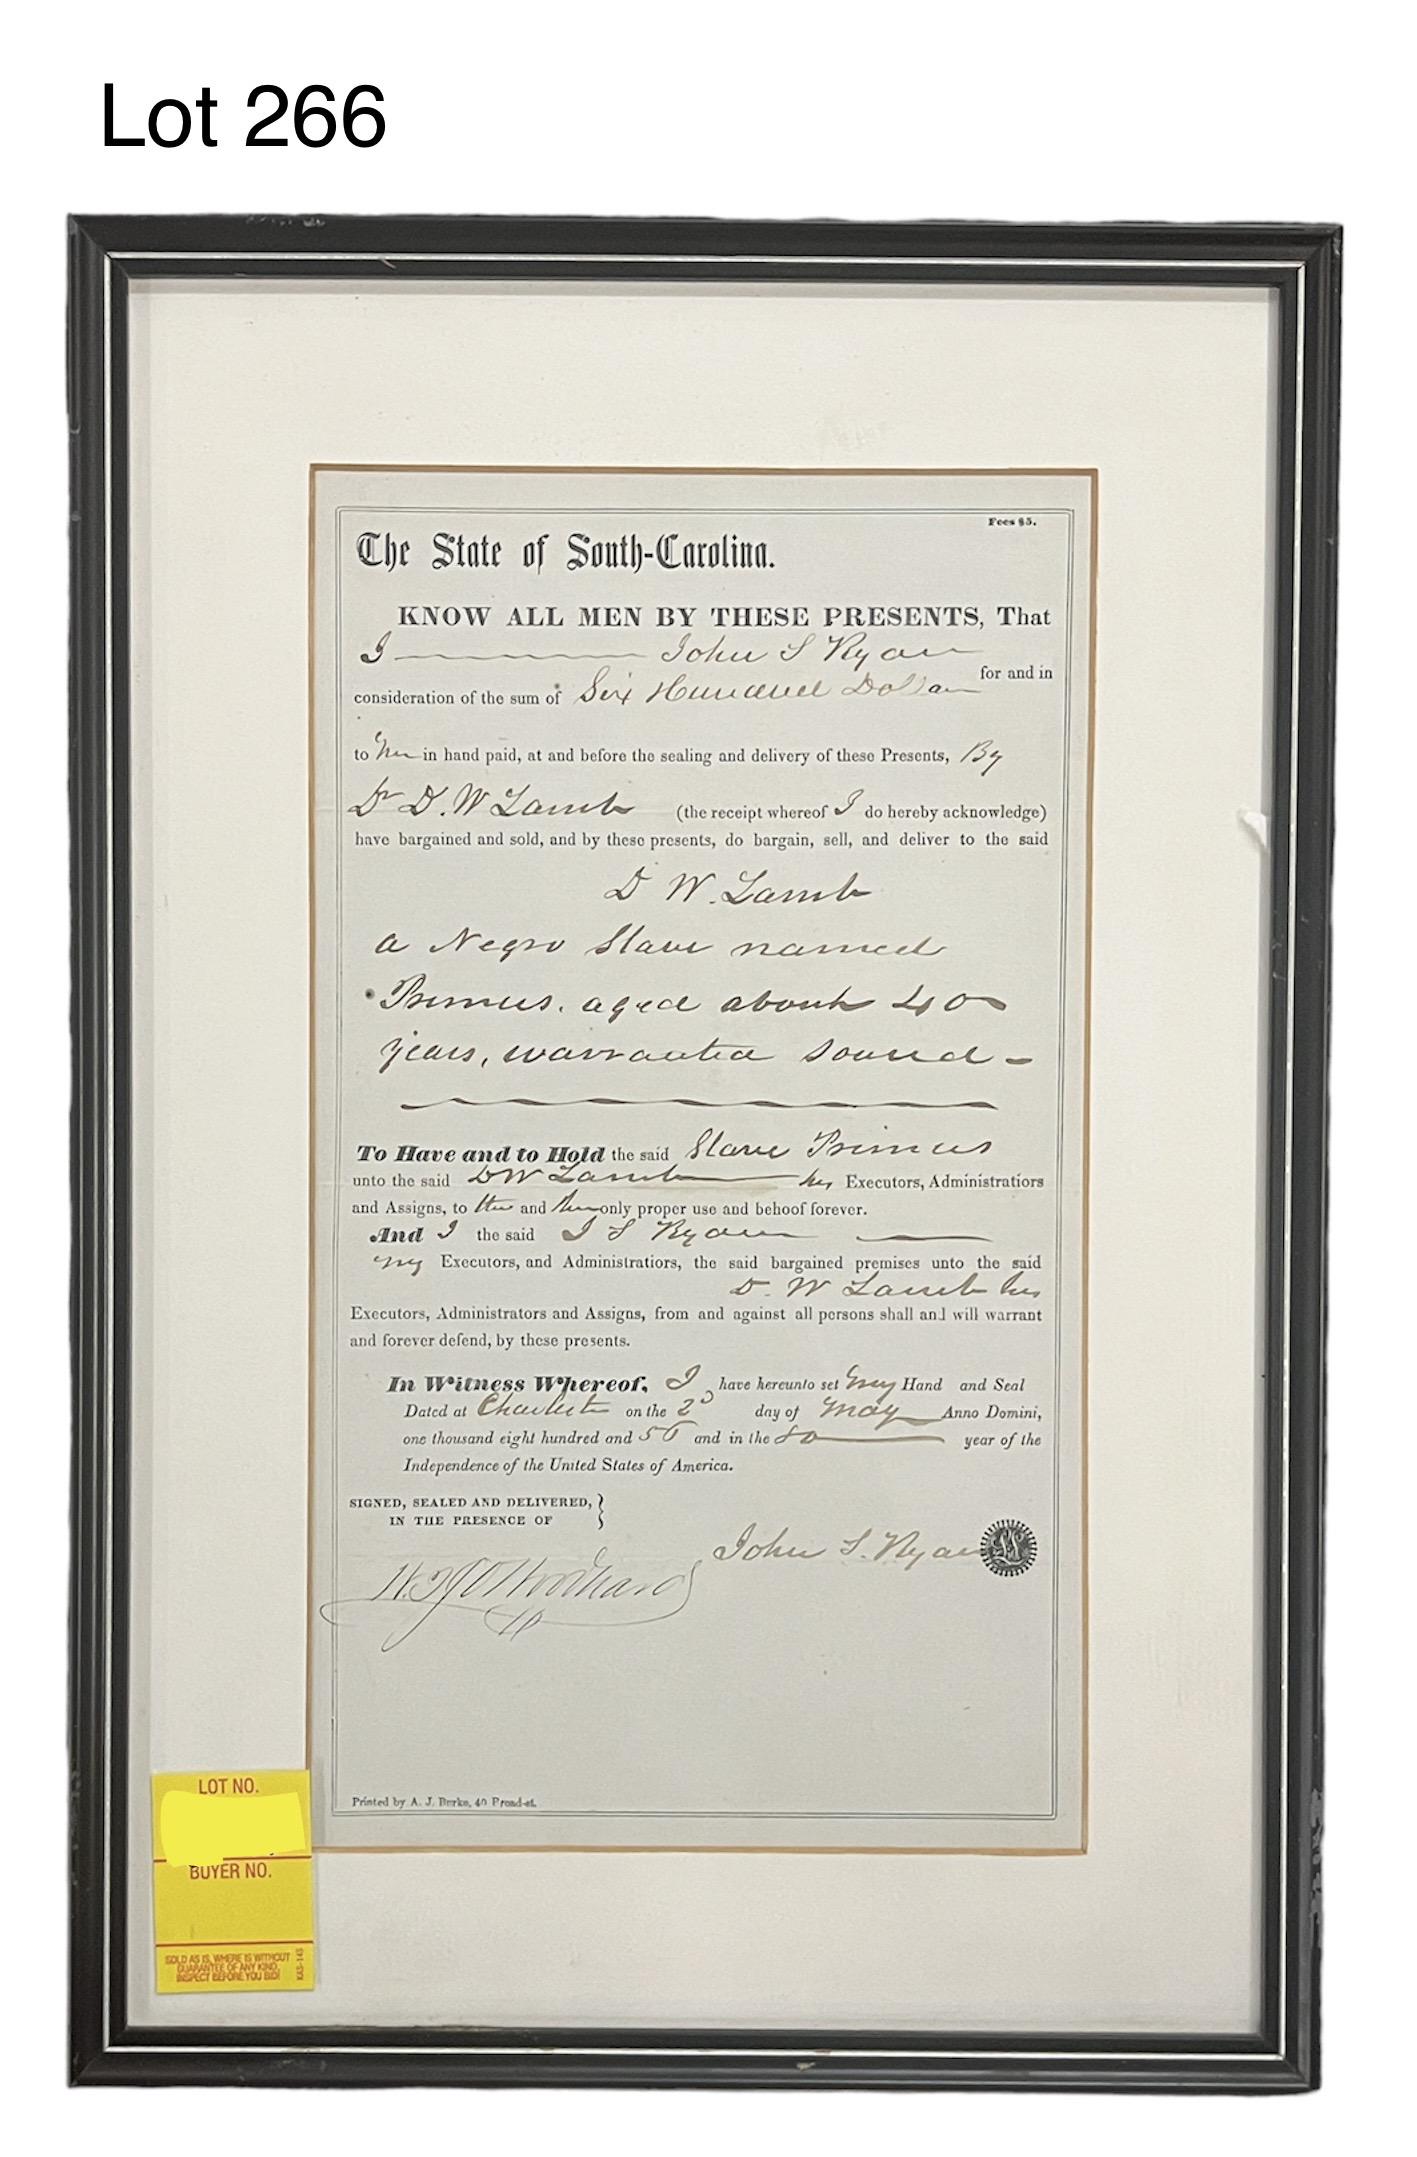 Lot 266
Fees $5.
The State of South-Carolina.
KNOW ALL MEN BY THESE PRESENTS, That
I John S Ryan
for and in
consideration of the sum of Six Hundred Dollars
to me in hand paid, at and before the sealing and delivery of these Presents, By
Dr D. W Lamb (the receipt whereof I do hereby acknowledge)
have bargained and sold, and by these presents, do bargain, sell, and deliver to the said
D W. Lamb
a Negro Slave named
Primus. aged about 40
years, warranted sound -
To Have and to Hold the said Slave Primus
unto the said D W Lamb his Executors, Administratiors
and Assigns, to and only proper use and behoof forever.
And I the said J S Ryan
my Executors, and Administratiors, the said bargained premises unto the said
D. W Lamb his
Executors, Administrators and Assigns, from and against all persons shall and will warrant
and forever defend, by these presents.
In Witness Whereof, I have hereunto set my Hand and Seal
Dated at Charleston on the 2d day of May Anno Domini,
one thousand eight hundred and 56 and in the 80 year of the
Independence of the United States of America.
SIGNED, SEALED AND DELIVERED,
IN THE PRESENCE OF
John S. Ryan LS
Printed by A. J. Burke, 40 Broad-st.
LOT NO.
BUYER NO.
SOLD AS IS, WHERE IS WITHOUT
GUARANTEE OF ANY KIND.
INSPECT BEFORE YOU BID!
KAS-143